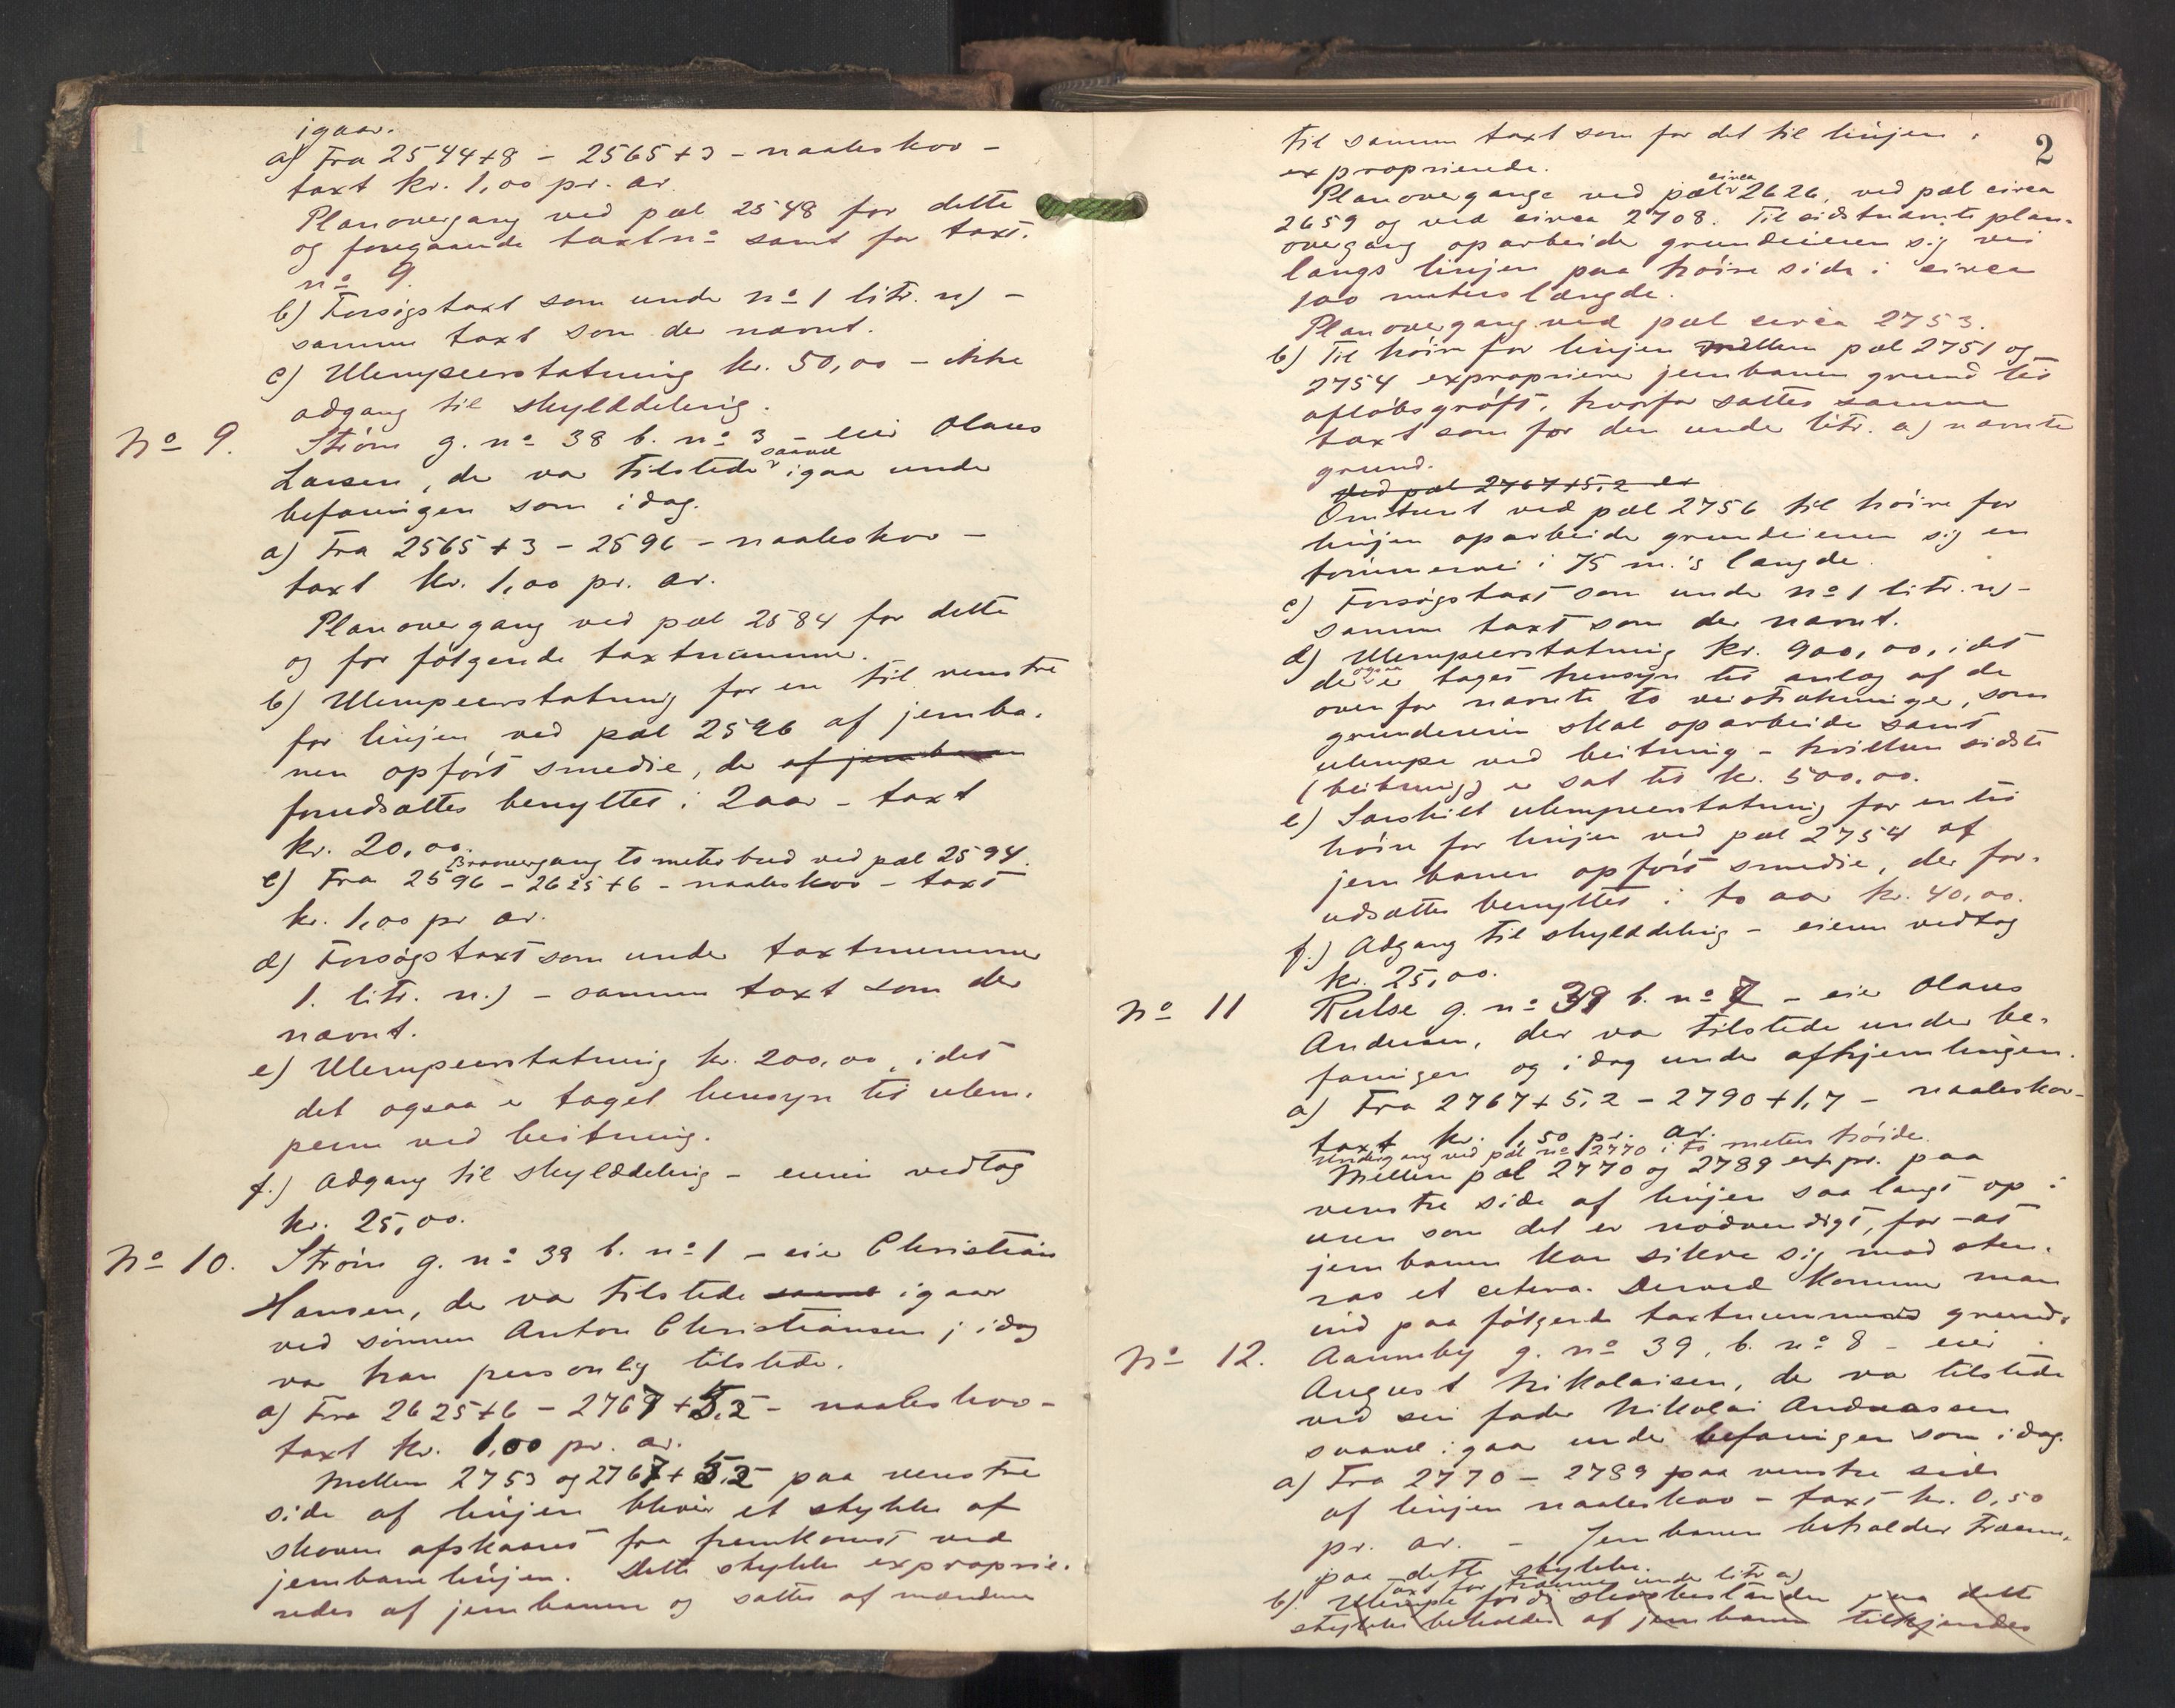 igaar.
a) Fra 2544+8 - 2565+3 - naaleskov -
taxt kr. 1,00 pr. ar.
Planovergang ved pæl 2548 for dette
og foregaaende taxtno samt for taxt.
no 9.
b) Forsøgstaxt som under No 1 litr. n) -
samme taxt som der nævnt.
c) Ulempeerstatning kr. 50,00 - ikke
adgang til skylddeling.
No 9. Strøm g. no 38 b. no 3 - eier Olaus
Larsen, der var tilstede saavel igaar under
befaringen som idag.
a) Fra 2565+3 - 2596 - naaleskov -
taxt kr. 1,00 pr. ar.
Planovergang ved pæl 2584 for dette
og for følgende taxtnummer.
b) Ulempeerstatning for en til venstre
for linjen ved pæl 2596 af jernba-
nen opført smedie, der af jernbanen
forudsættes benyttet i 2 aar - taxt
kr. 20,00.
Broovergang to meter bred ved pæl 2594.
c) Fra 2596 - 2625+6 - naaleskov - taxt
kr. 1,00 pr ar.
d) Forsøgstaxt som under taxtnummer
1. litr. n.) - samme taxt som der
nævnt.
e) Ulempeerstatning kr. 200,00, idet
det ogsaa er taget hensyn til ulem-
pern ved beitning.
f.) Adgang til skylddeling - eieren vedtog
kr. 25,00.
No 10. Strøm g. no 38 b. no 1 - eier Christian
Hansen, der var tilstede samt igaar
ved sønnen Anton Christiansen; idag
var han personlig tilstede.
a) Fra 2625+6 - 2767+5,2 - naaleskov -
taxt kr. 1,00 pr. ar.
Mellem 2753 og 2767+5,2 paa venstre
side af linjen bliver et stykke af
skoven afskaaret fra fremkomst ved
jernbanelinjen. Dette stykke exproprie-
redes af jernbanen og sættes af mændene
2
til samme taxt som for det til linjen
exproprierede.
Planovergange ved pæl circa 2626, ved pæl circa
2659 og ved circa 2708. Til sidstnævnte plan-
overgang oparbeider grundeieren sig vei
langs linjen paa høire side i circa
100 meters længde.
Planovergang ved pæl circa 2753.
b) Til høire for linjen mellem pæl 2751 og
2754 exproprierer jernbanen grund til
afløbsgrøft, hvorfor sættes samme
taxt som for den under litr. a) nævnte
grund.
Ved pæl 2767+5,2 er
Omtrent ved pæl 2756 til høire for
linjen oparbeider grundeieren sig en
tømmervei i 75 m.'s længde.
c) Forsøgstaxt som under No 1 litr. n) -
samme taxt som der nævnt.
d) Ulempeerstatning kr. 900,00, idet
der ogsaa er taget hensyn til anlæg af de
ovenfor nævnte to veistrækninger, som
grundeieren skal oparbeide samt
ulempe ved beitning - hvilken sidste
(beitning) er sat til kr. 500,00.
e) Særskilt ulempeerstatning for en til
høire for linjen ved pæl 2754 af
jernbanen opført smedie, der for-
udsættes benyttet i to aar kr. 40,00.
f.) Adgang til skylddeling - eieren vedtog
kr. 25,00.
No 11 Rulse g. no 39 b. no 7 - eier Olaus
Andersen, der var tilstede under be-
faringen og idag under afhjemlingen.
a) Fra 2767+5,2 - 2790+1,7 - naaleskov -
taxt kr. 1,50 pr. ar.
Undergang ved pæl no 2770 i to meters høide.
Mellem pæl 2770 og 2789 expr. paa
venstre side af linjen saa langt op i
uren som det er nødvendigt, for at
jernbanen kan sikre sig mod sten-
ras et cetera. Derved kommer man
ind paa følgende taxtnummers grund.
No 12. Aarumby g. no 39, b. no 8 - eier
August Nikolaisen, der var tilstede
ved sin fader Nikolai Andreassen
saavel igaar under befaringen som idag.
a) Fra 2770 - 2789 paa venstre side
af linjen naaleskov - taxt kr. 0,50
pr. ar. - Jernbanen beholder træerne
paa dette stykke.
taxt for træerne under litr a)
b) Ulempe fordi skovbestanden paa dette
stykke beholdes af jernbanen tilkjendes